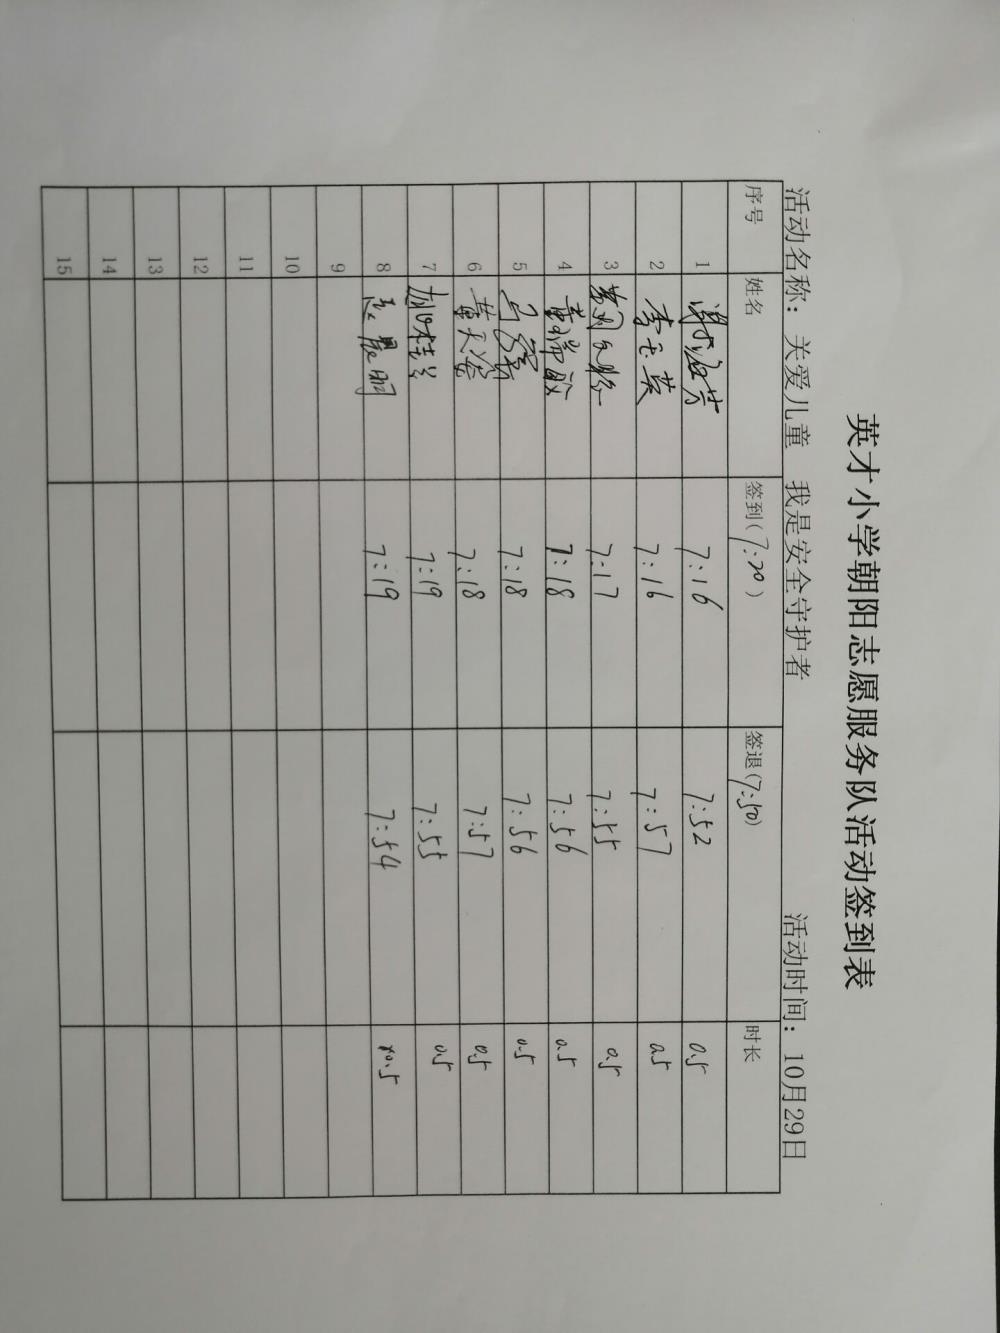 英才小学朝阳志愿服务队活动签到表
活动名称：关爱儿童 我是安全守护者 活动时间：10月29日
序号 姓名 签到(7:20) 签退(7:50) 时长
1 7:16 7:52 0.5
2 李玉英 7:16 7:57 0.5
3 7:17 7:55 0.5
4 董瑞敏 7:18 7:56 0.5
5 7:18 7:56 0.5
6 黄天姿 7:18 7:57 0.5
7 桂兰 7:19 7:55 0.5
8 晨明 7:19 7:54 0.5
9
10
11
12
13
14
15